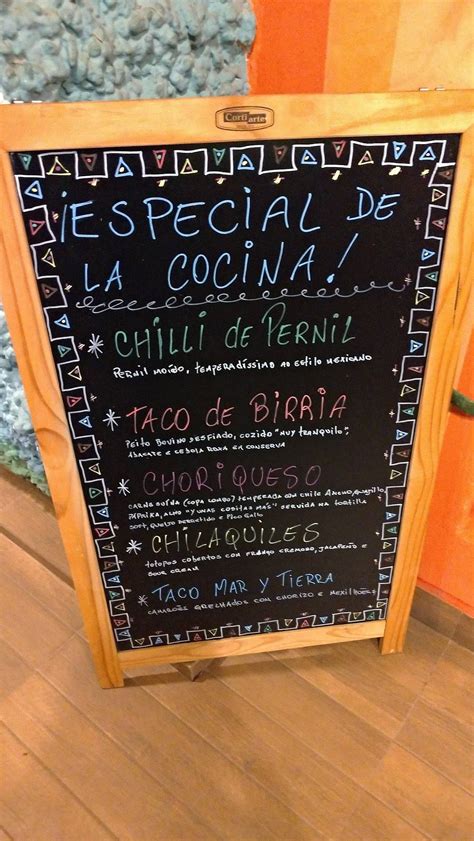 Cortiarte
¡ESPECIAL DE
LA COCINA!
* CHILLI de PERNIL
PERNIL MOÍDO, TEMPERADÍSSIMO AO ESTILO MEXICANO
* TACO de BIRRIA
PEITO BOVINO DESFIADO, COZIDO "MUY TRANQUILO",
ABACATE E CEBOLA ROXA EM CONSERVA
* CHORIQUESO
CARNE SUÍNA (COPA LOMBO) TEMPERADA COM CHILE ANCHO, GUAJILLO,
PAPRIKA, ALHO "Y UNAS COSITAS MAS" SERVIDA NA TORTILLA
SOFT, QUEIJO DERRETIDO E PICO GALLO
* CHILAQUILES
TOTOPOS COBERTOS COM FRANGO CREMOSO, JALAPEÑO E
SOUR CREAM
* TACO MAR Y TIERRA
CAMARÕES GRELHADOS COM CHORIZO E MEXILHÕES